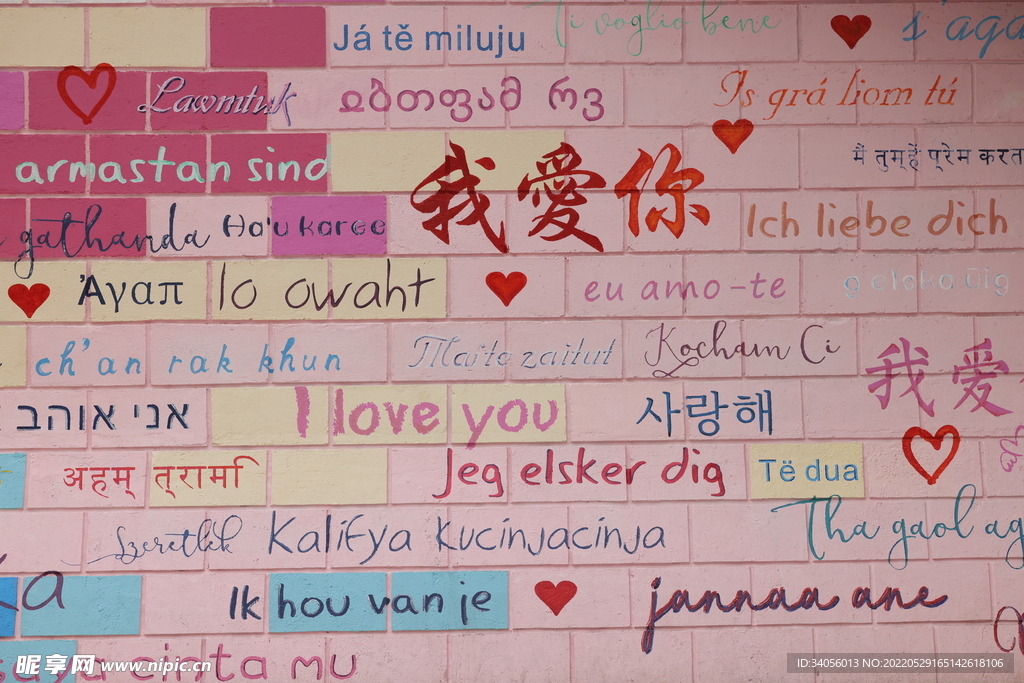 Já tě miluju
Ti voglio bene
s'aga
Lawmtuk
Is grá liom tú
armastan sind
我愛你
मैं तुम्हें प्रेम करता
gathanda
Ha'u karee
Ich liebe dich
Ἀγαπ
lo owaht
eu amo-te
g elska ðig
ch'an rak khun
Kocham Ci
我愛
אני אוהב
I love you
사랑해
Jeg elsker dig
Të dua
Szeretlek
Kalifya kucinjacinja
Tha gaol ag
Ik hou van je
jannaa ane
saya cinta mu
昵享网 www.nipic.cn
ID:34056013 NO:20220529165142618106